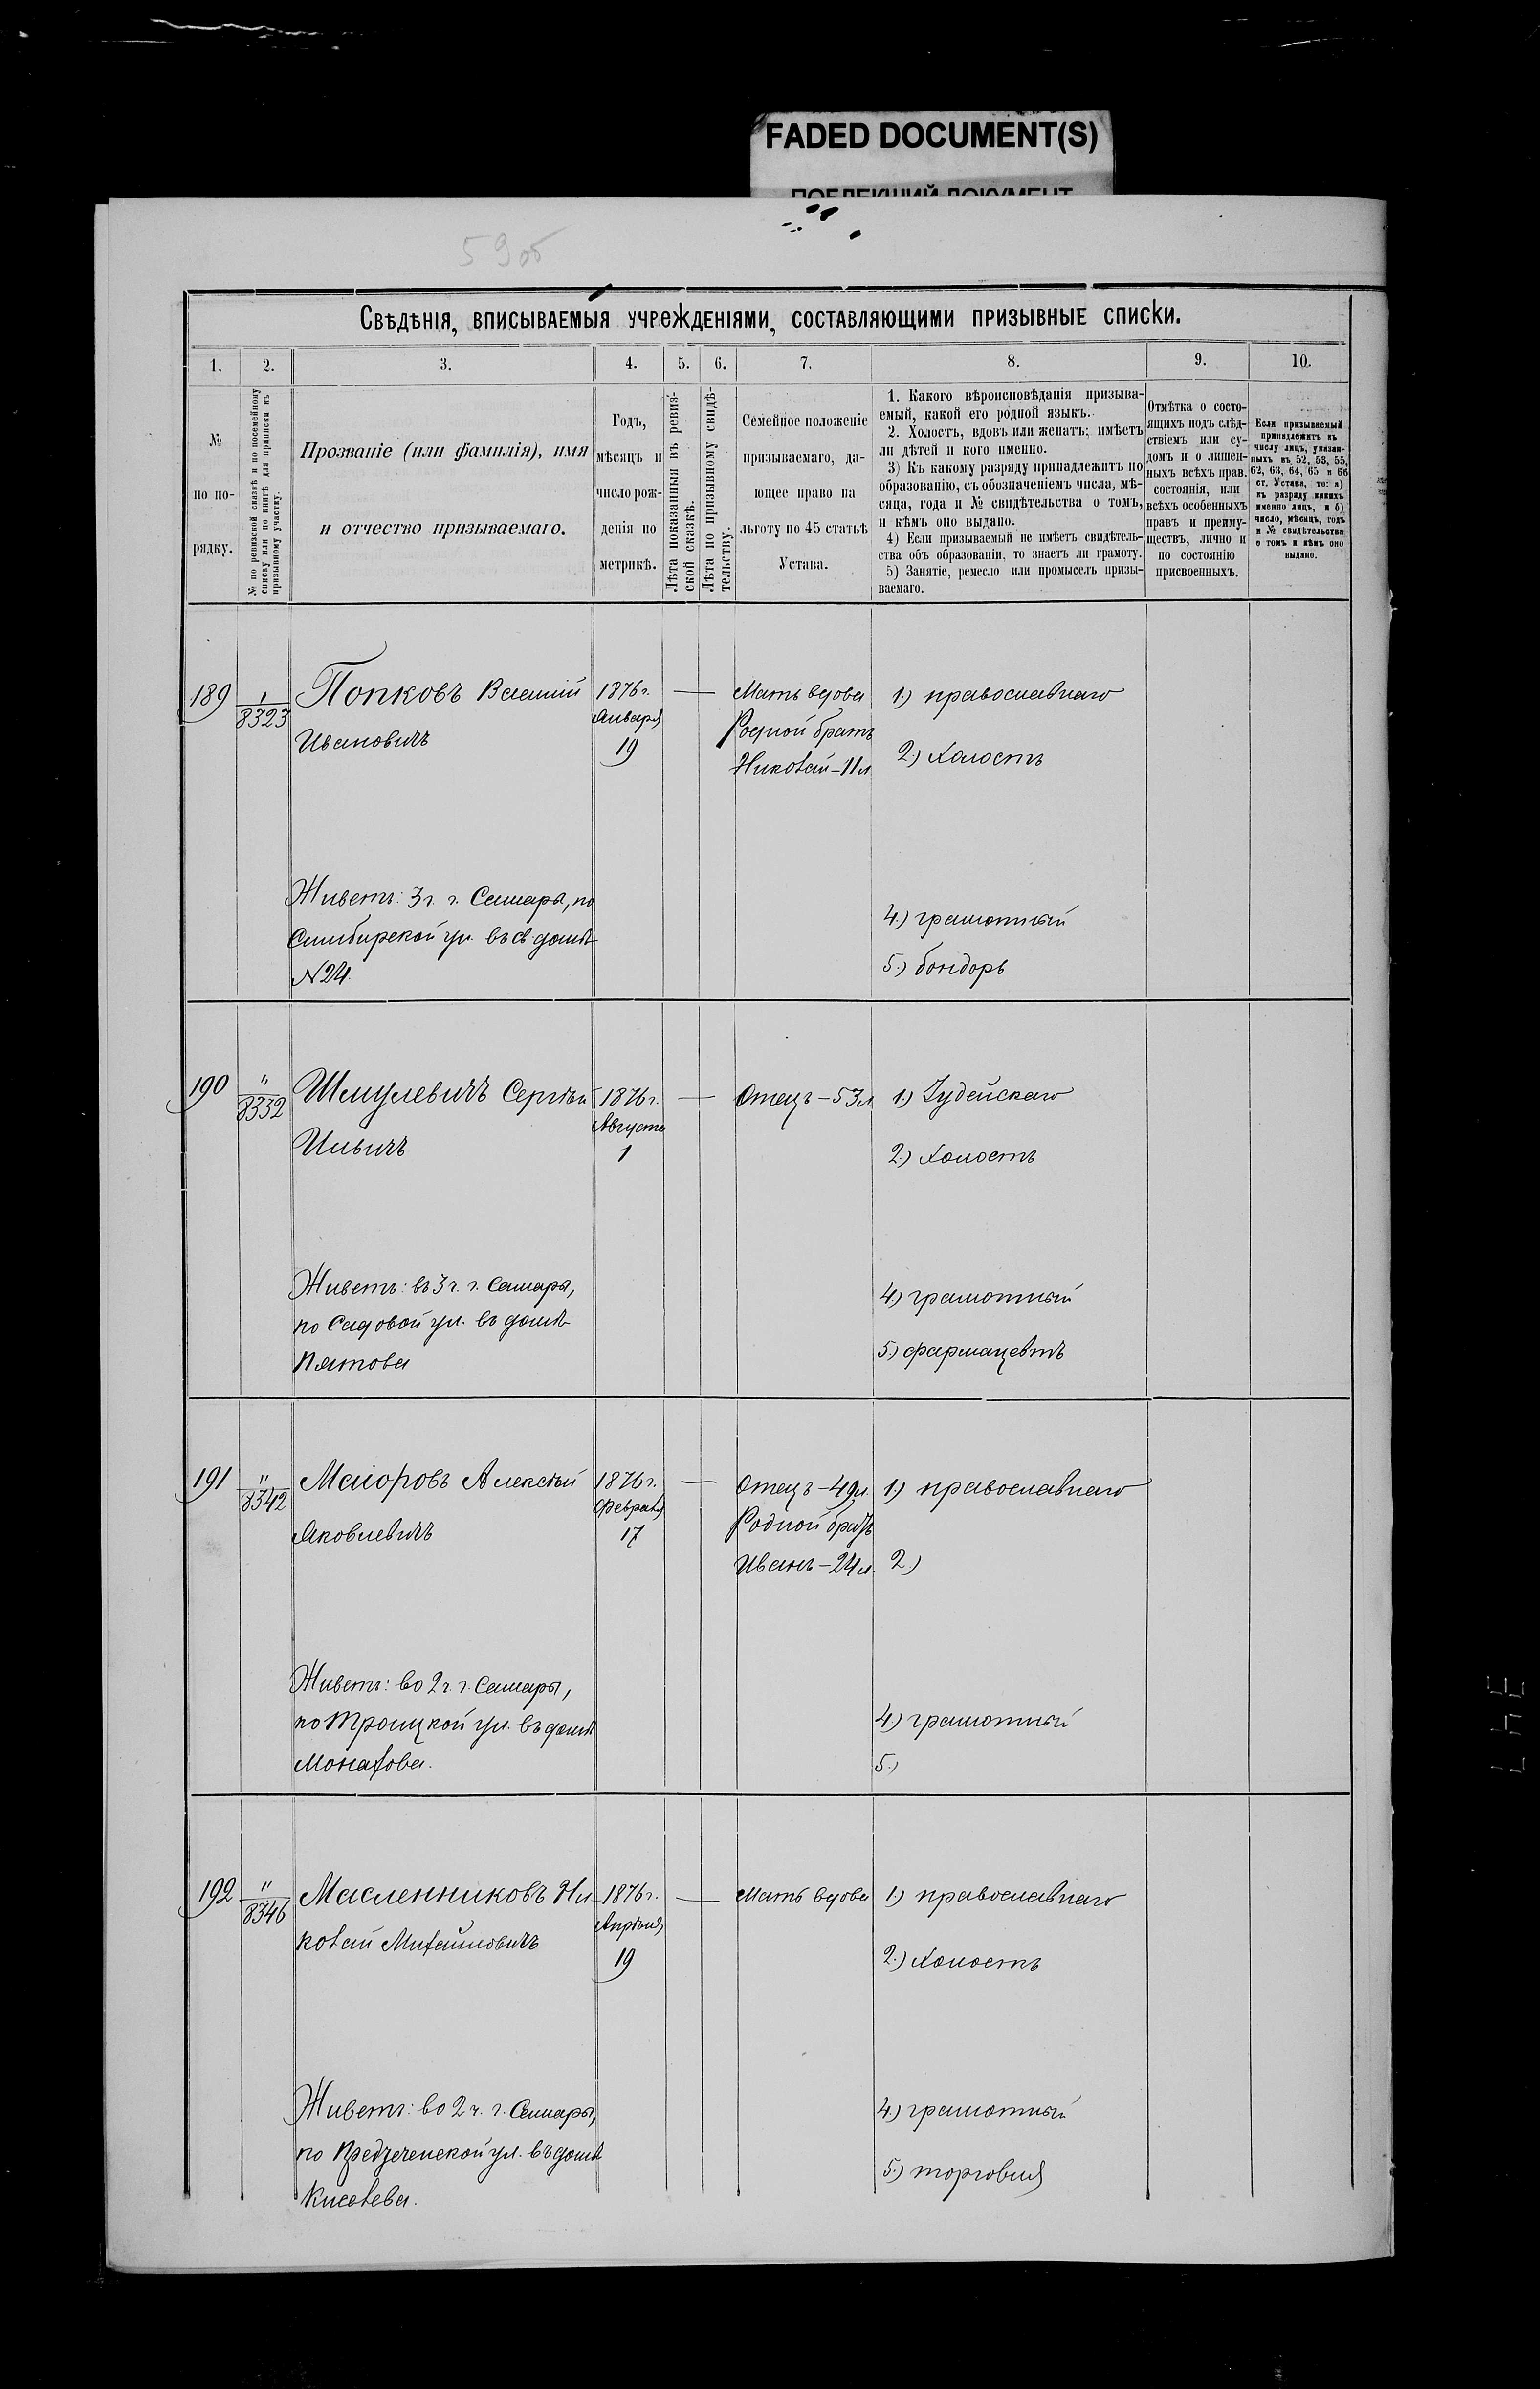 FADED DOCUMENT(S)
ПОБЛЕКШИЙ ДОКУМЕНТ
59об
Свѣдѣнія, вписываемыя учрежденіями, составляющими призывные списки.
1.
2.
3.
4.
5.
6.
7.
8.
9.
10.
№
по по-
рядку.
№ по ревизской сказкѣ и по посемейному
списку или по книгѣ для приписки къ
призывному участку.
Прозваніе (или фамилія), имя
и отчество призываемаго.
Годъ,
мѣсяцъ и
число рож-
денія по
метрикѣ.
Лѣта показанныя въ ревиз-
ской сказкѣ.
Лѣта по призывному свидѣ-
тельству.
Семейное положеніе
призываемаго, да-
ющее право на
льготу по 45 статьѣ
Устава.
1. Какого вѣроисповѣданія призыва-
емый, какой его родной языкъ.
2. Холостъ, вдовъ или женатъ; имѣетъ
ли дѣтей и кого именно.
3) Къ какому разряду принадлежитъ по
образованію, съ обозначеніемъ числа, мѣ-
сяца, года и № свидѣтельства о томъ,
и кѣмъ оно выдано.
4) Если призываемый не имѣетъ свидѣтель-
ства объ образованіи, то знаетъ ли грамоту.
5) Занятіе, ремесло или промыселъ призы-
ваемаго.
Отмѣтка о состо-
ящихъ подъ слѣд-
ствіемъ или су-
домъ и о лишен-
ныхъ всѣхъ прав.
состоянія, или
всѣхъ особенныхъ
правъ и преиму-
ществъ, лично и
по состоянію
присвоенныхъ.
Если призываемый
принадлежитъ къ
числу лицъ, указан-
ныхъ въ 52, 53, 55,
62, 63, 64, 65 и 66
ст. Устава, то: а)
къ разряду какихъ
именно лицъ, и б)
число, мѣсяцъ, годъ
и № свидѣтельства
о томъ и кѣмъ оно
выдано.
189
1
8323
Попковъ Василій
Ивановичъ
1876 г.
Января
19
—
Мать вдова
Родной братъ
Николай – 11 л
1) православнаго
2.) Холостъ
Живетъ: 3 ч. г. Самары, по
Симбирской ул. въ св. домѣ
№ 24.
4.) грамотный
5.) бондорь
190
"
8332
Шмулевичъ Сергѣй
Ильичъ
1876 г.
Августа
1
—
Отецъ – 53 л
1.) Іудейскаго
2.) Холостъ
Живетъ: въ 3 ч. г. Самары,
по Садовой ул. въ домѣ
Пятова
4.) грамотный
5.) фармацевтъ
191
"
8342
Маіоровъ Алексѣй
Яковлевичъ
1876 г.
Февраля
17
—
Отецъ – 49 л.
Родной братъ
Иванъ – 24 л.
1.) православнаго
2.)
Живетъ: во 2 ч. г. Самары,
по Троицкой ул. въ домѣ
Монахова.
4.) грамотный
5.)
192
"
8346
Масленниковъ Ни
колай Михайловичъ
1876 г.
Апрѣля
19
—
Мать вдова
1.) православнаго
2.) Холостъ
Живетъ: во 2 ч. г. Самары,
по Предтеченской ул. въ домѣ
Киселева.
4.) грамотный
5.) торговля